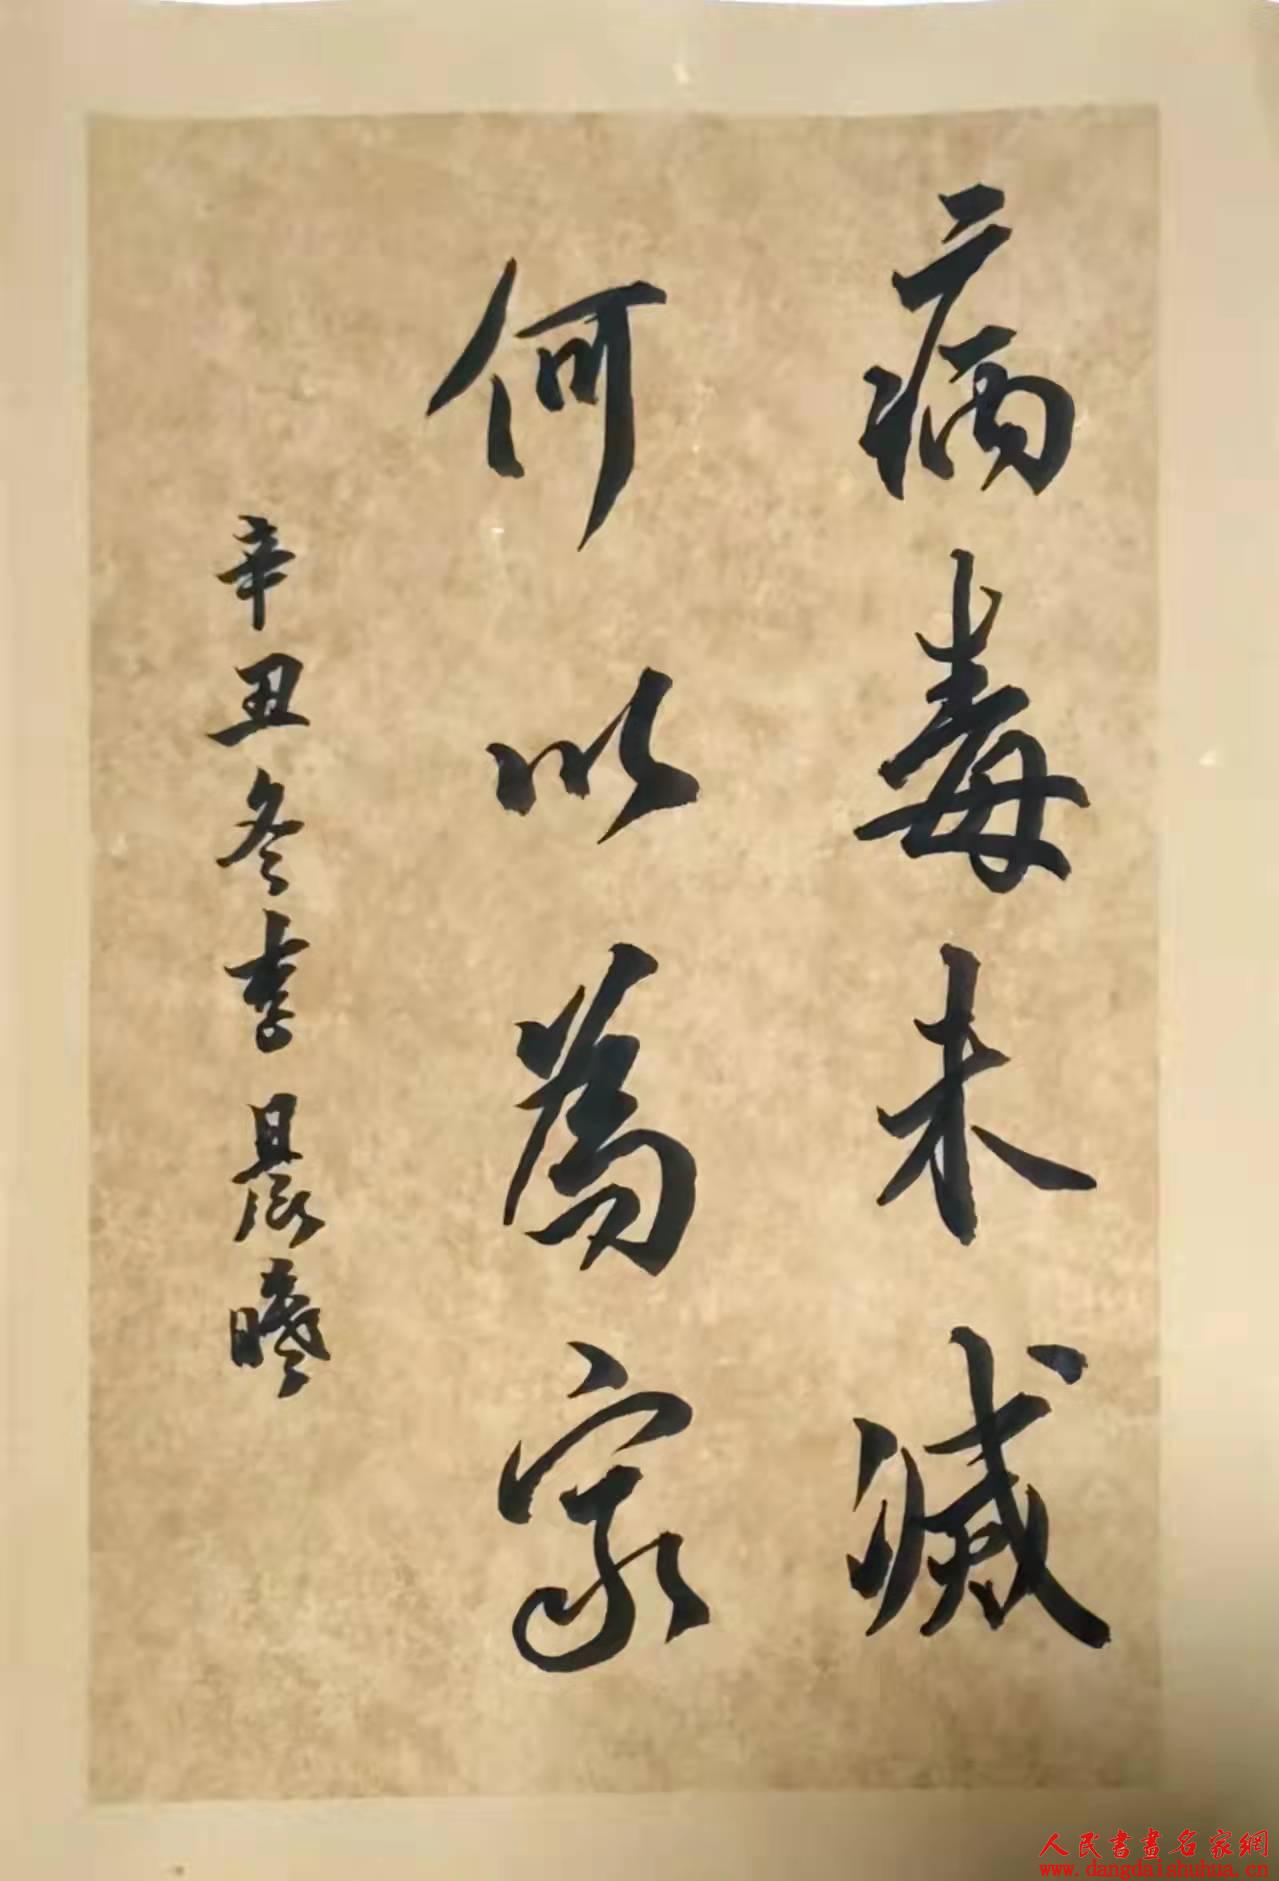 病毒未滅
何以為家
辛丑冬李晨曦
人民書畫名家網
www.dangdaishuhua.cn